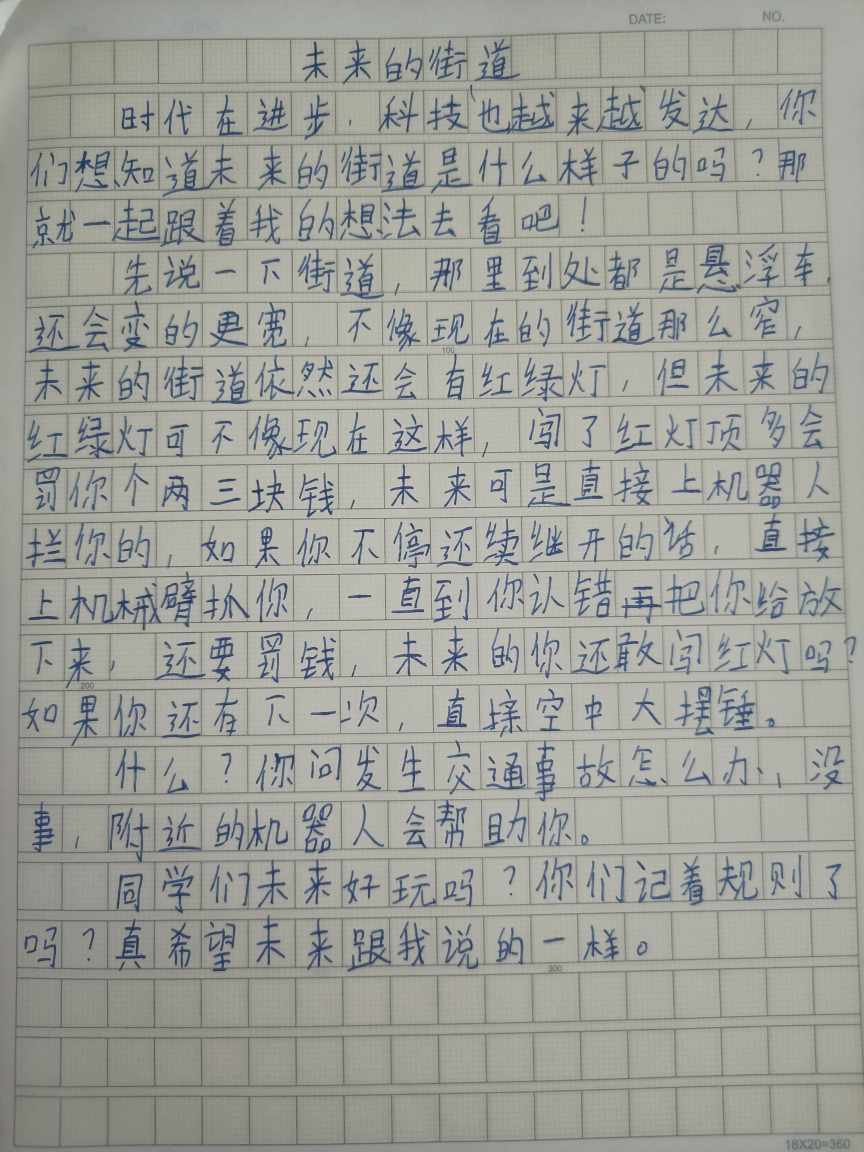 DATE: NO.
未来的街道
时代在进步，科技也越来越发达，你
们想知道未来的街道是什么样子的吗？那
就一起跟着我的想法去看吧！
先说一下街道，那里到处都是悬浮车，
还会变的更宽，不像现在的街道那么窄，
未来的街道依然还会有红绿灯，但未来的
100
红绿灯可不像现在这样，闯了红灯顶多会
罚你个两三块钱，未来可是直接上机器人
拦你的，如果你不停还续继开的话，直接
上机械臂抓你，一直到你认错再把你给放
下来，还要罚钱，未来的你还敢闯红灯吗？
200
如果你还有下一次，直接空中大摆锤。
什么？你问发生交通事故怎么办，没
事，附近的机器人会帮助你。
同学们未来好玩吗？你们记着规则了
吗？真希望未来跟我说的一样。
300
18X20=360